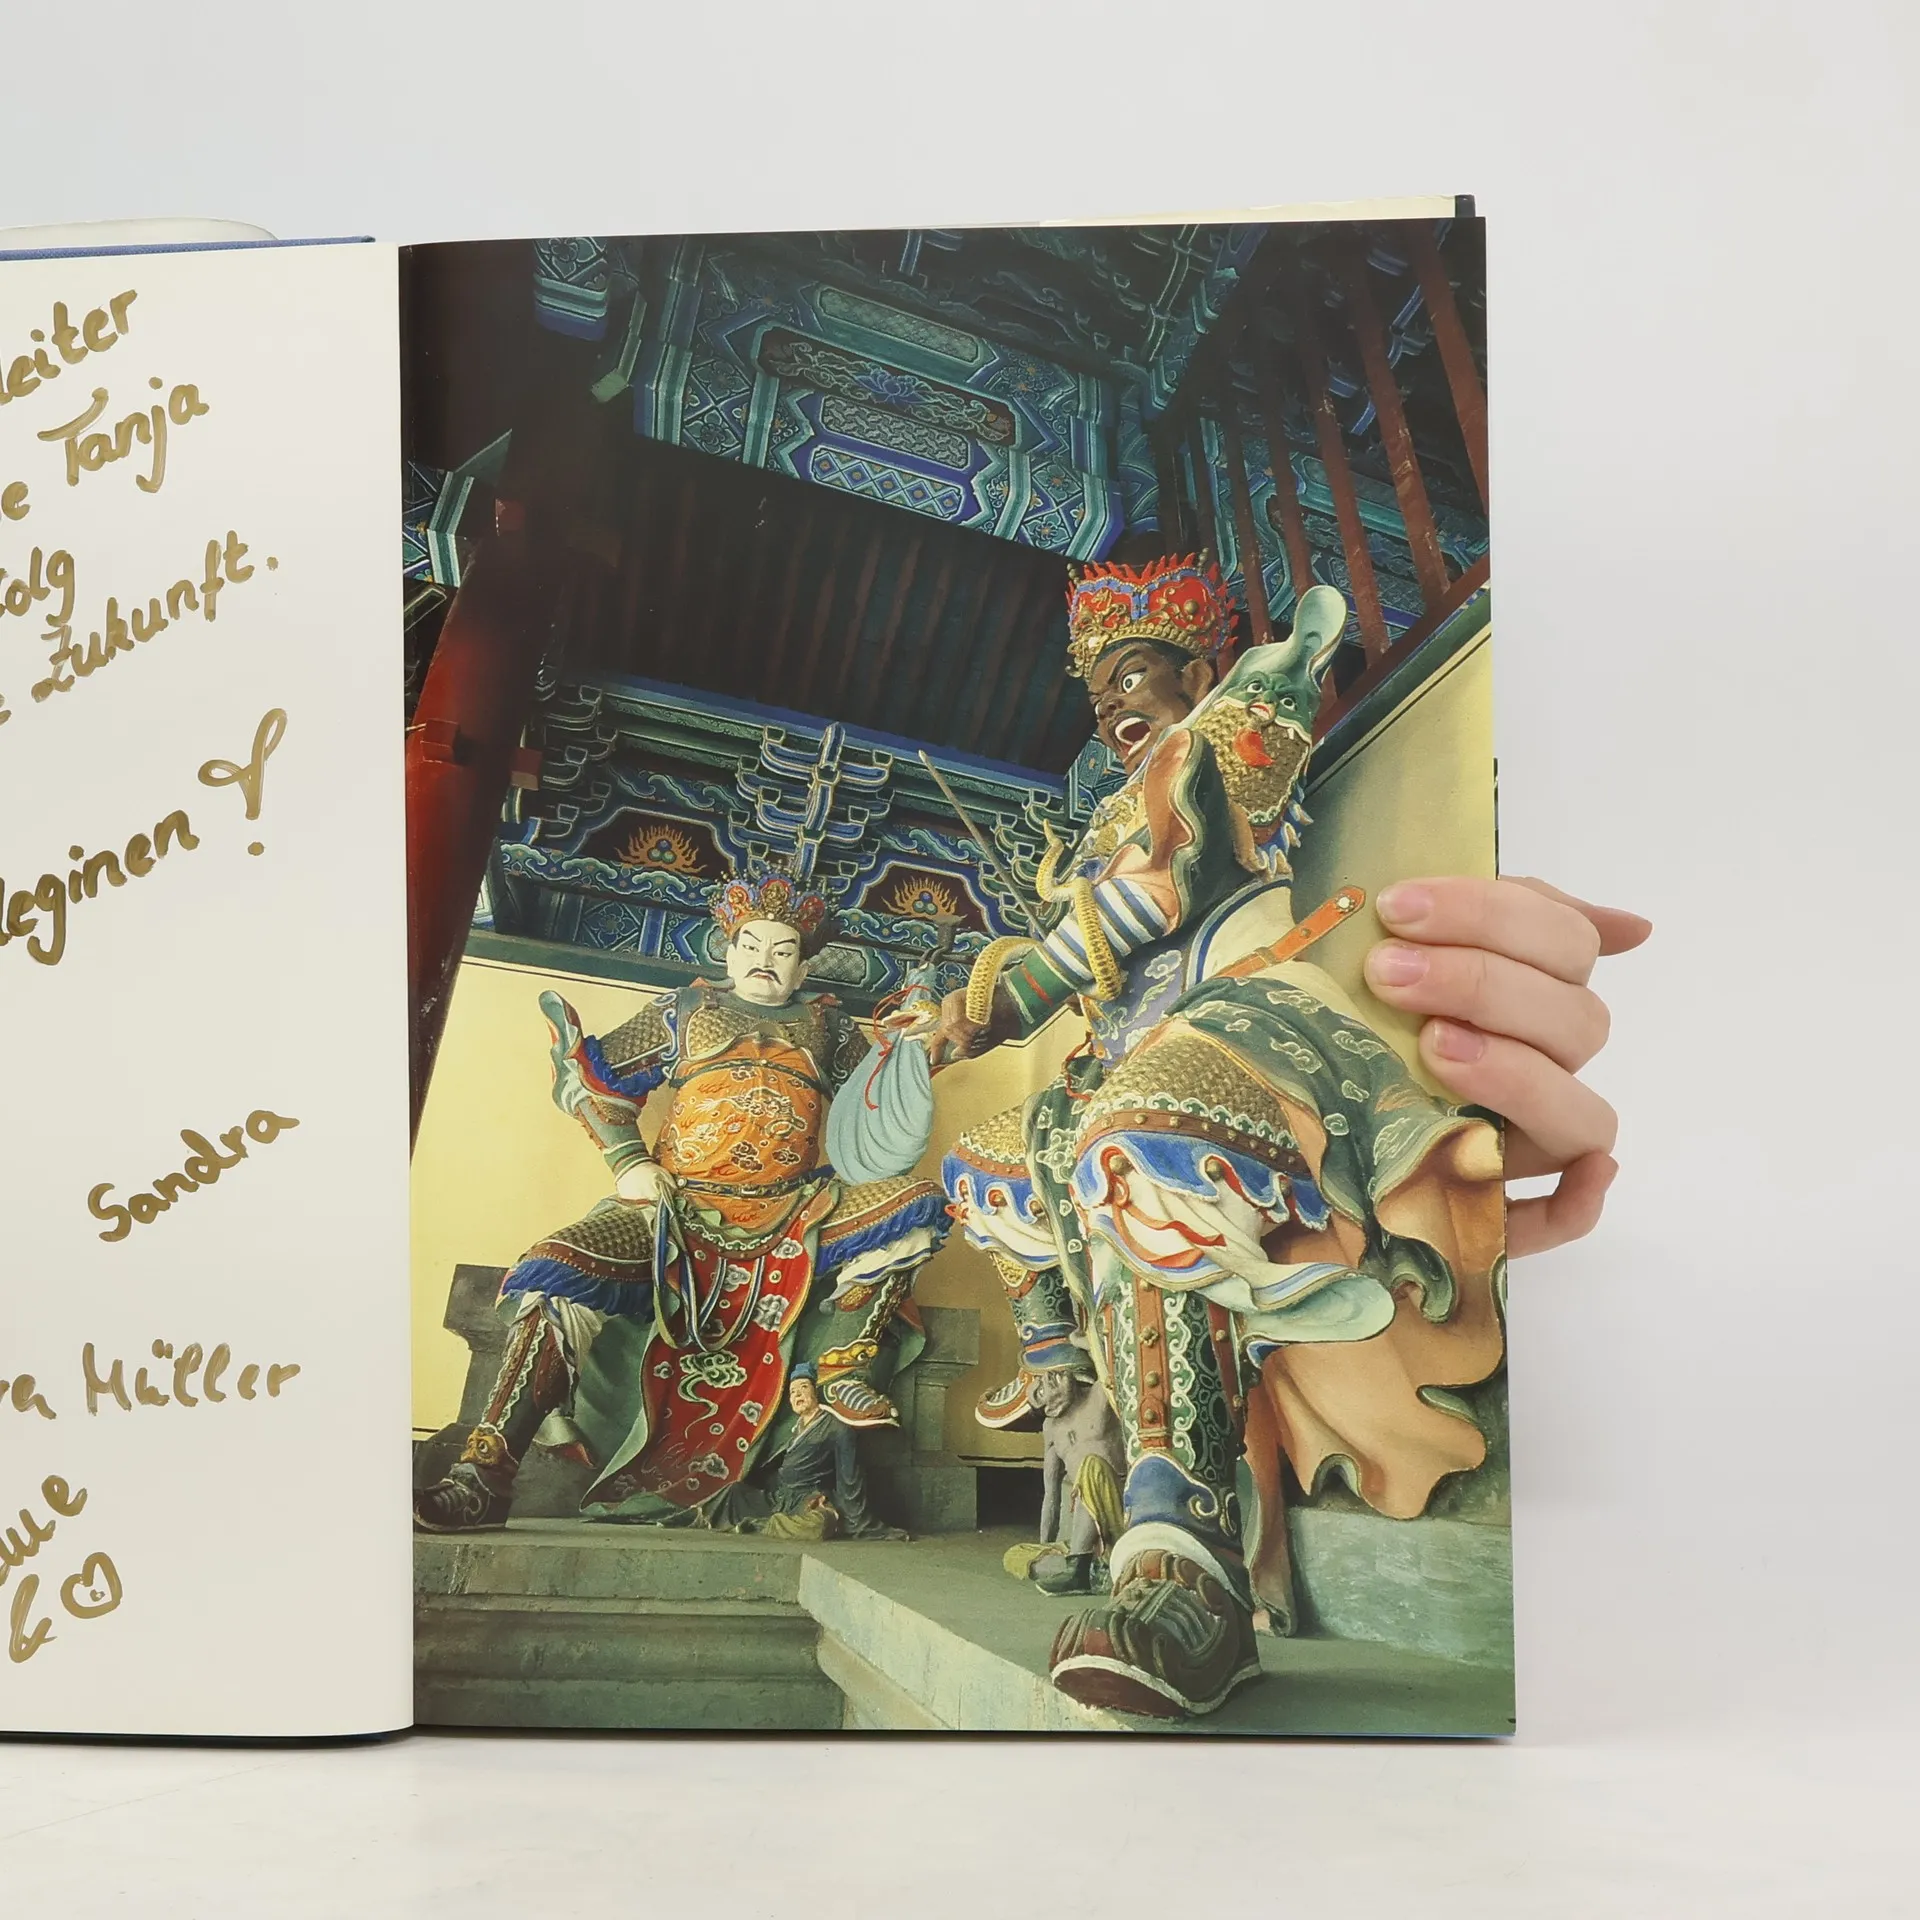 leiter
e Tanja
folg
Zukunft.
leginen
Sandra
ra Müller